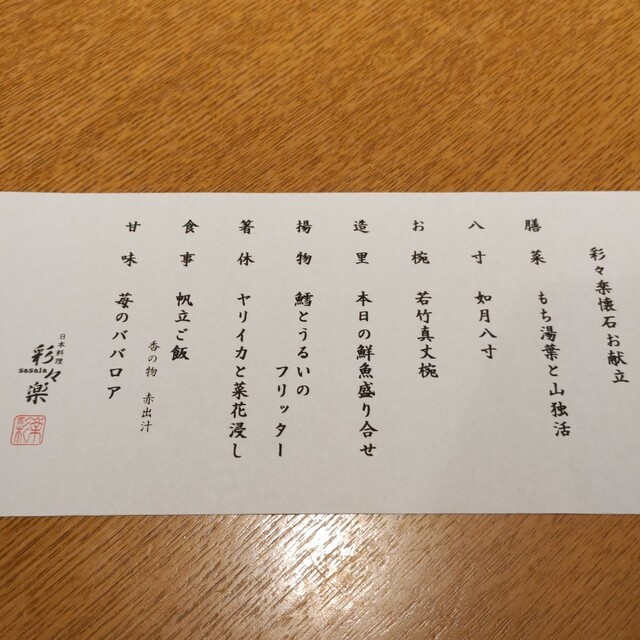 彩々楽懐石お献立
膳菜 もち湯葉と山独活
八寸 如月八寸
お椀 若竹真丈椀
造里 本日の鮮魚盛り合せ
揚物 鱈とうるいの
フリッター
箸休 ヤリイカと菜花浸し
食事 帆立ご飯
香の物 赤出汁
甘味 苺のババロア
日本料理
彩々楽
sasala